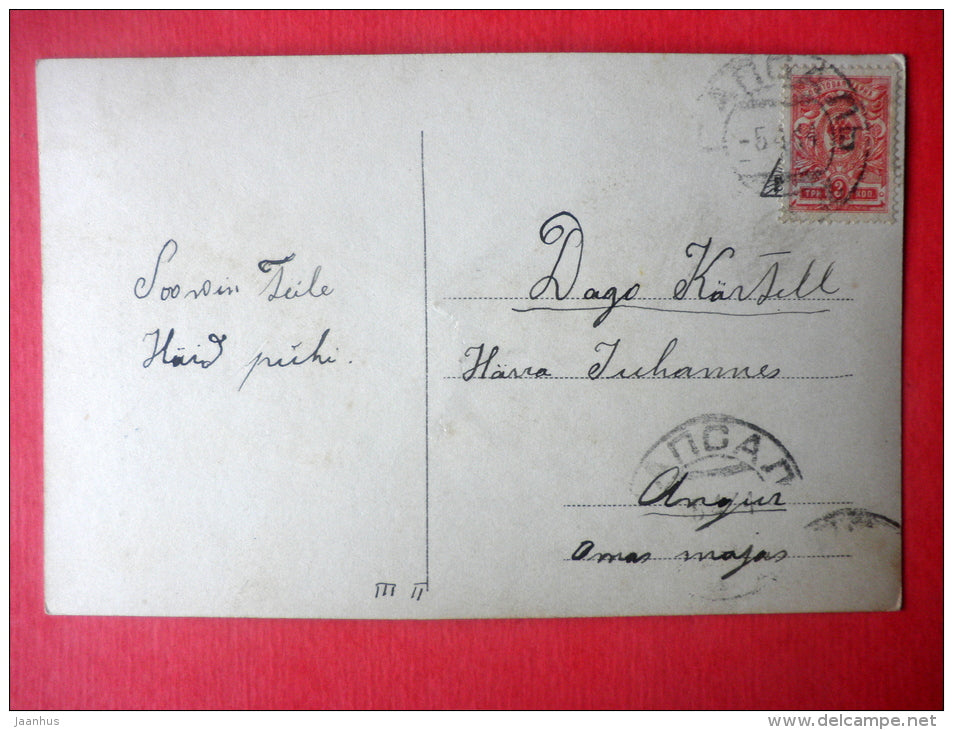 Soowin Teile
Häid pühi.
Dago Kärtell
Härra Juhannes
Angur
omas majas
III II
АПСАЛ
-5.4.14
ТРИ 3 КОП
Jaanhus
www.delcampe.net